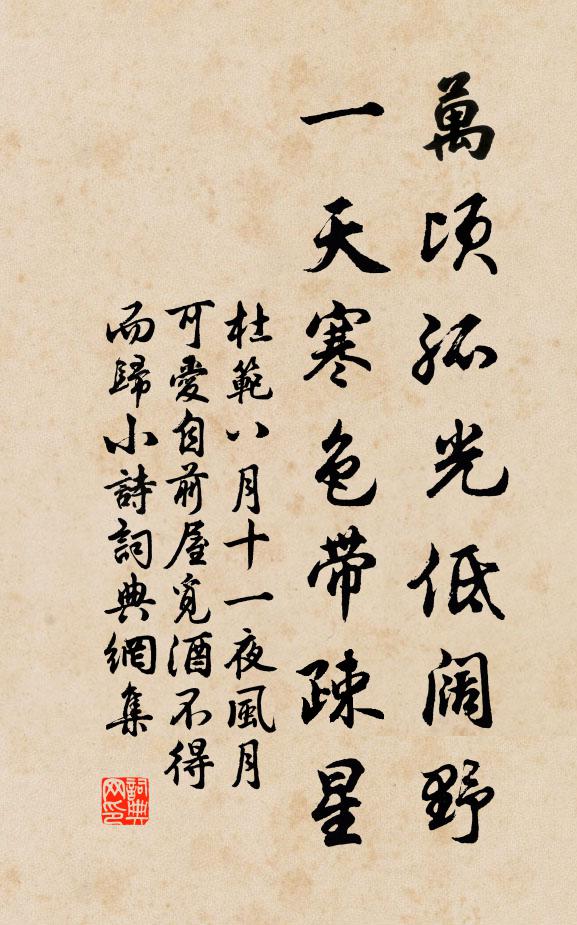 萬頃孤光低阔野
一天寒色带疎星
杜範八月十一夜風月
可愛自前屋覓酒不得
而歸小詩詞典網集
詞典网印